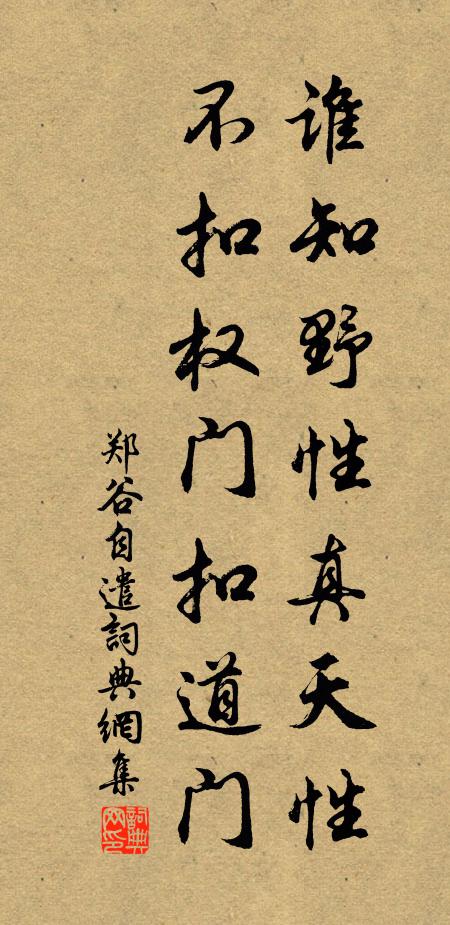 谁知野性真天性
不扣权门扣道门
郑谷自遣詞典網集
詞典网印